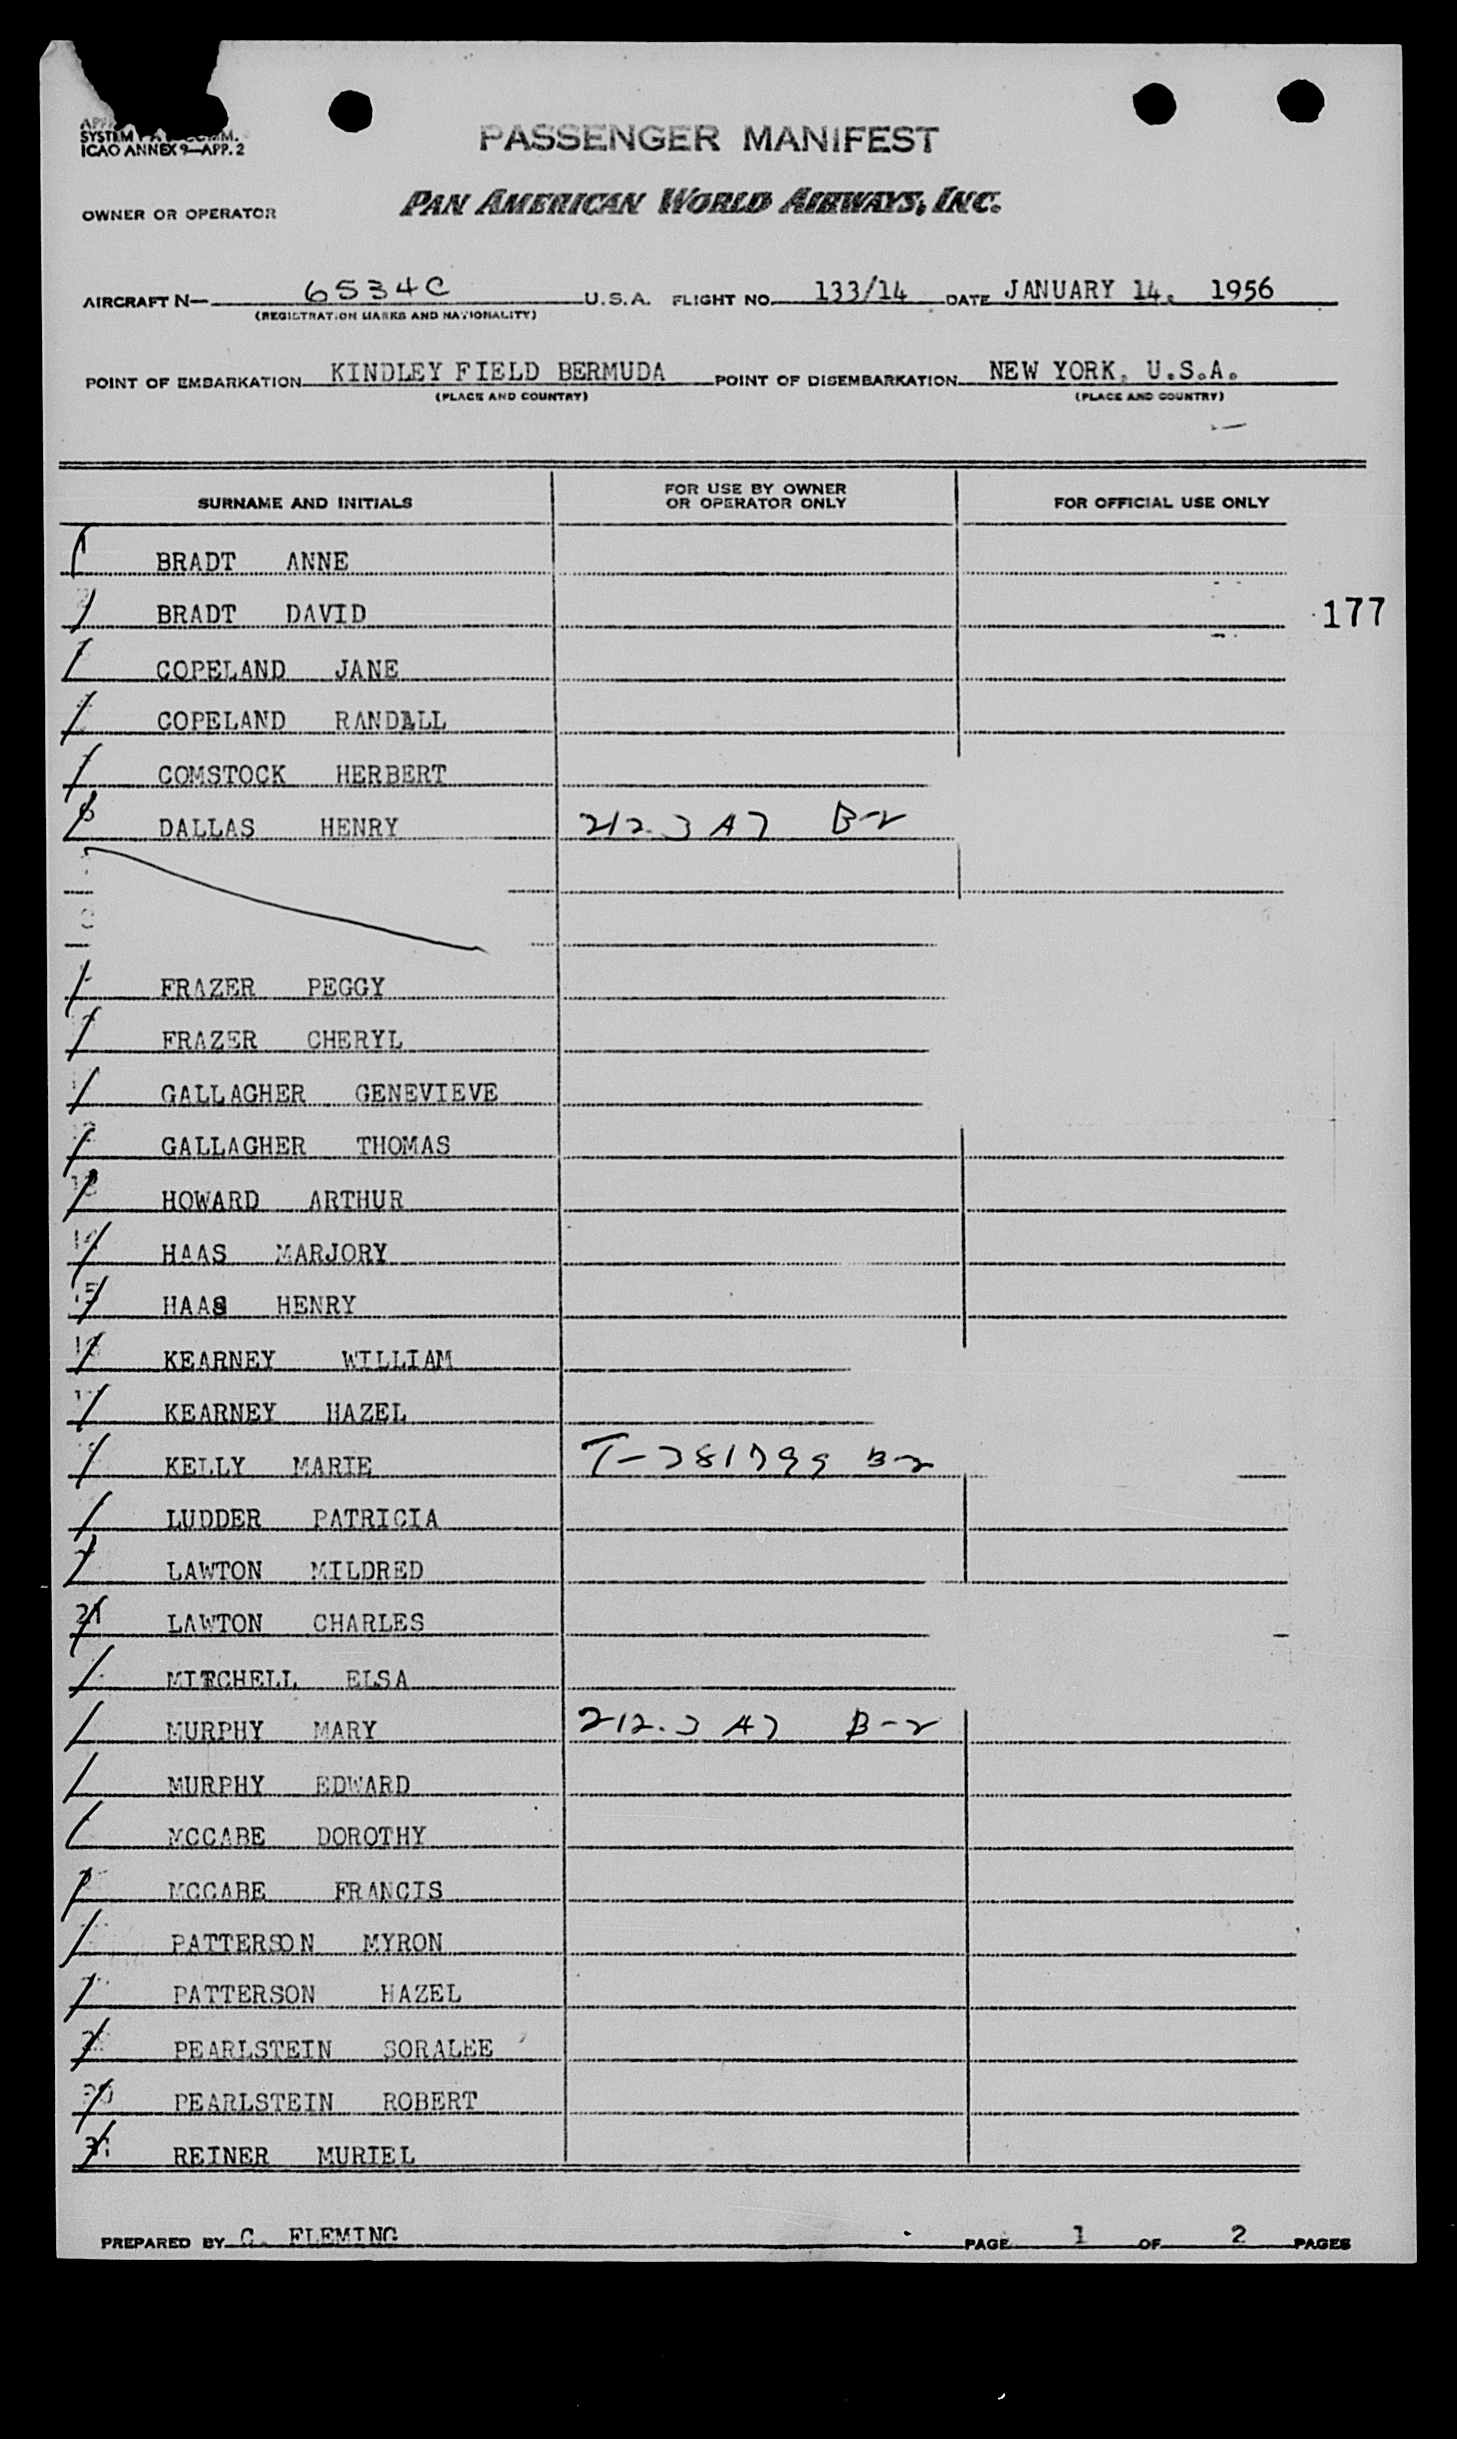 ICAO ANNEX 9—APP. 2
PASSENGER MANIFEST
OWNER OR OPERATOR PAN AMERICAN WORLD AIRWAYS, INC.
AIRCRAFT N— 6534C U.S.A. FLIGHT NO. 133/14 DATE JANUARY 14. 1956
(REGISTRATION MARKS AND NATIONALITY)
POINT OF EMBARKATION KINDLEY FIELD BERMUDA POINT OF DISEMBARKATION NEW YORK. U.S.A.
(PLACE AND COUNTRY) (PLACE AND COUNTRY)
SURNAME AND INITIALS FOR USE BY OWNER OR OPERATOR ONLY FOR OFFICIAL USE ONLY
1 BRADT ANNE
BRADT DAVID 177
COPELAND JANE
COPELAND RANDALL
COMSTOCK HERBERT
6 DALLAS HENRY 212.3 A7 B-2
FRAZER PEGGY
FRAZER CHERYL
GALLAGHER GENEVIEVE
12 GALLAGHER THOMAS
13 HOWARD ARTHUR
14 HAAS MARJORY
15 HAAS HENRY
16 KEARNEY WILLIAM
17 KEARNEY HAZEL
KELLY MARIE B-2
LUDDER PATRICIA
LAWTON MILDRED
21 LAWTON CHARLES
MITCHELL ELSA
MURPHY MARY 212.3 A7 B-2
MURPHY EDWARD
MCCABE DOROTHY
MCCABE FRANCIS
PATTERSON MYRON
PATTERSON HAZEL
PEARLSTEIN SORALEE
30 PEARLSTEIN ROBERT
31 REINER MURIEL
PREPARED BY C. FLEMING PAGE 1 OF 2 PAGES